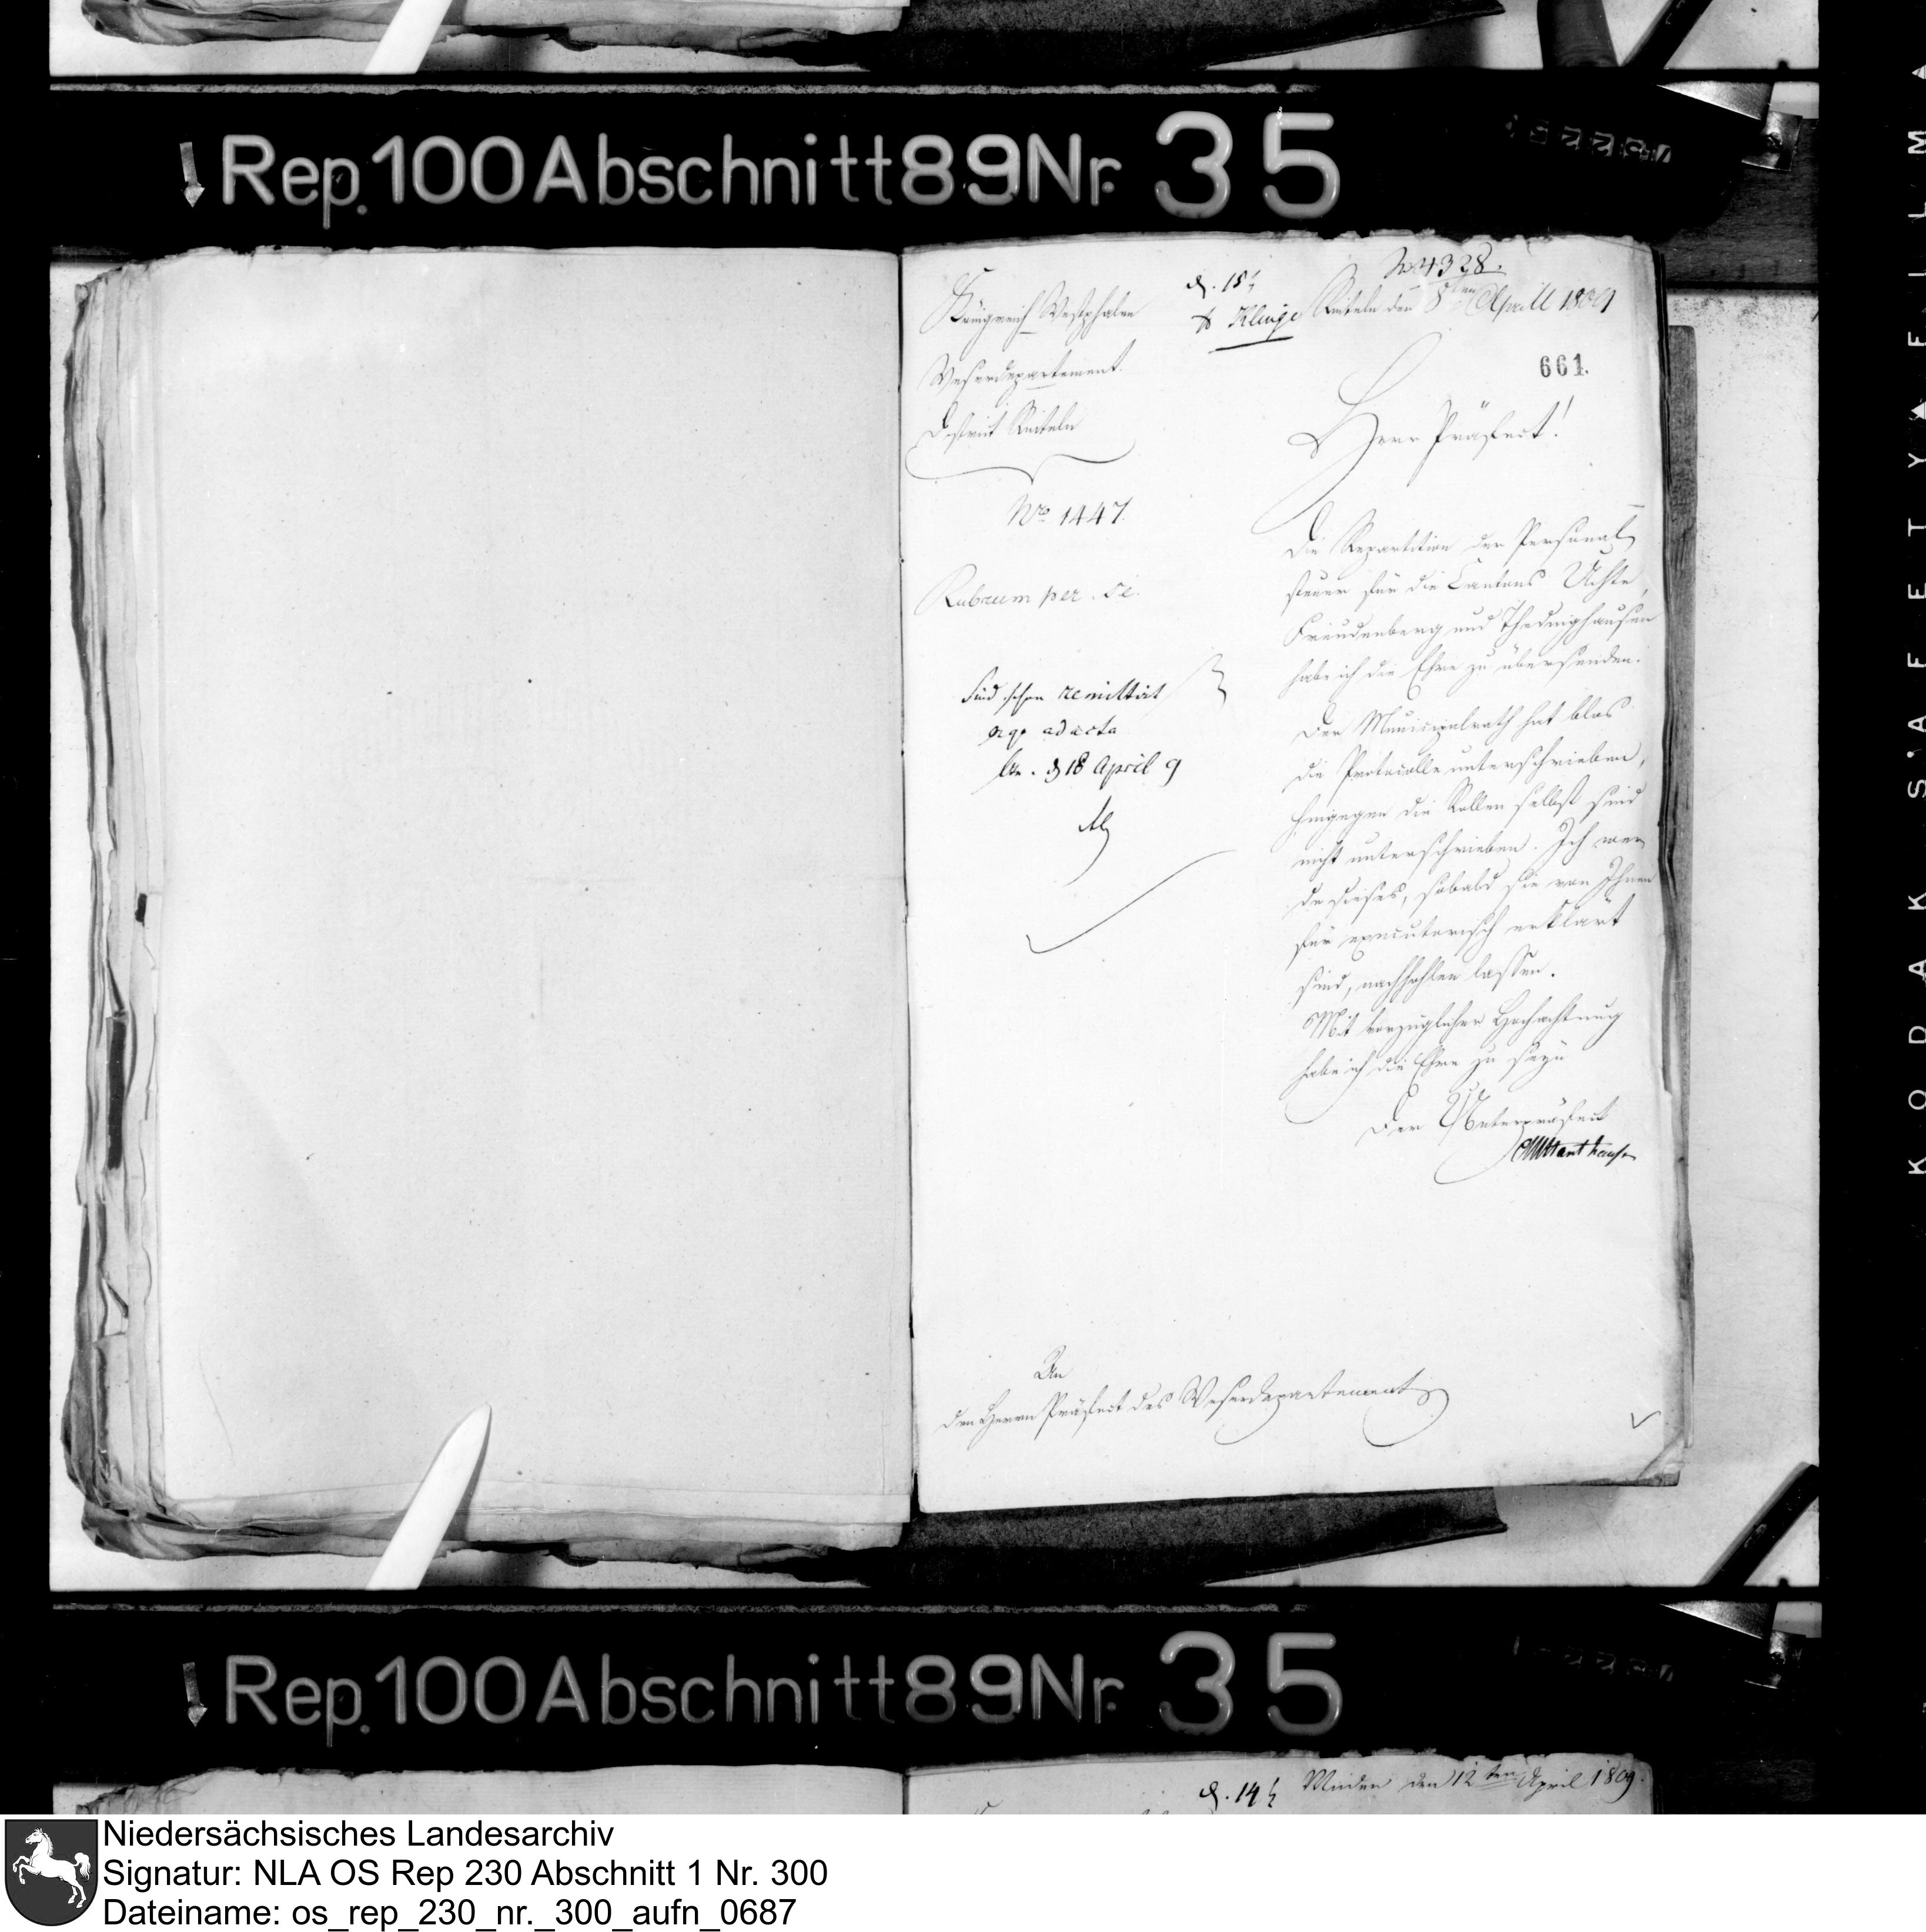 Rep. 100 Abschnitt 89 Nr. 35
No 4328.
d. 15t
Klinge
Rinteln den 8ten Aprill 1809
Königreich Westphalen
Weserdepartement.
District Rinteln
661.
Herr Präfect!
No 1447.
Rubrum per se.
Die Repartition der Personal-
steuer für die Cantons Uchte,
Freudenberg und Thedinghausen
habe ich die Ehre zu übersenden.
Der Municipalrath hat blos
die Protocolle unterschrieben,
hingegen die Rollen selbst sind
nicht unterschrieben. Ich wer-
de dieses, sobald sie von Ihnen
für executorisch erklärt
sind, nachhohlen lassen.
Mit vorzüglicher Hochachtung
habe ich die Ehre zu seyn
Der Unterpräfect
Sind schon remittirt
ad acta
d 18 April 9
An
den Herrn Präfect des Weserdepartements
Rep. 100 Abschnitt 89 Nr. 35
d. 14t
Minden den 12ten April 1809.
KODAK SAFETY FILM
Niedersächsisches Landesarchiv
Signatur: NLA OS Rep 230 Abschnitt 1 Nr. 300
Dateiname: os_rep_230_nr._300_aufn_0687